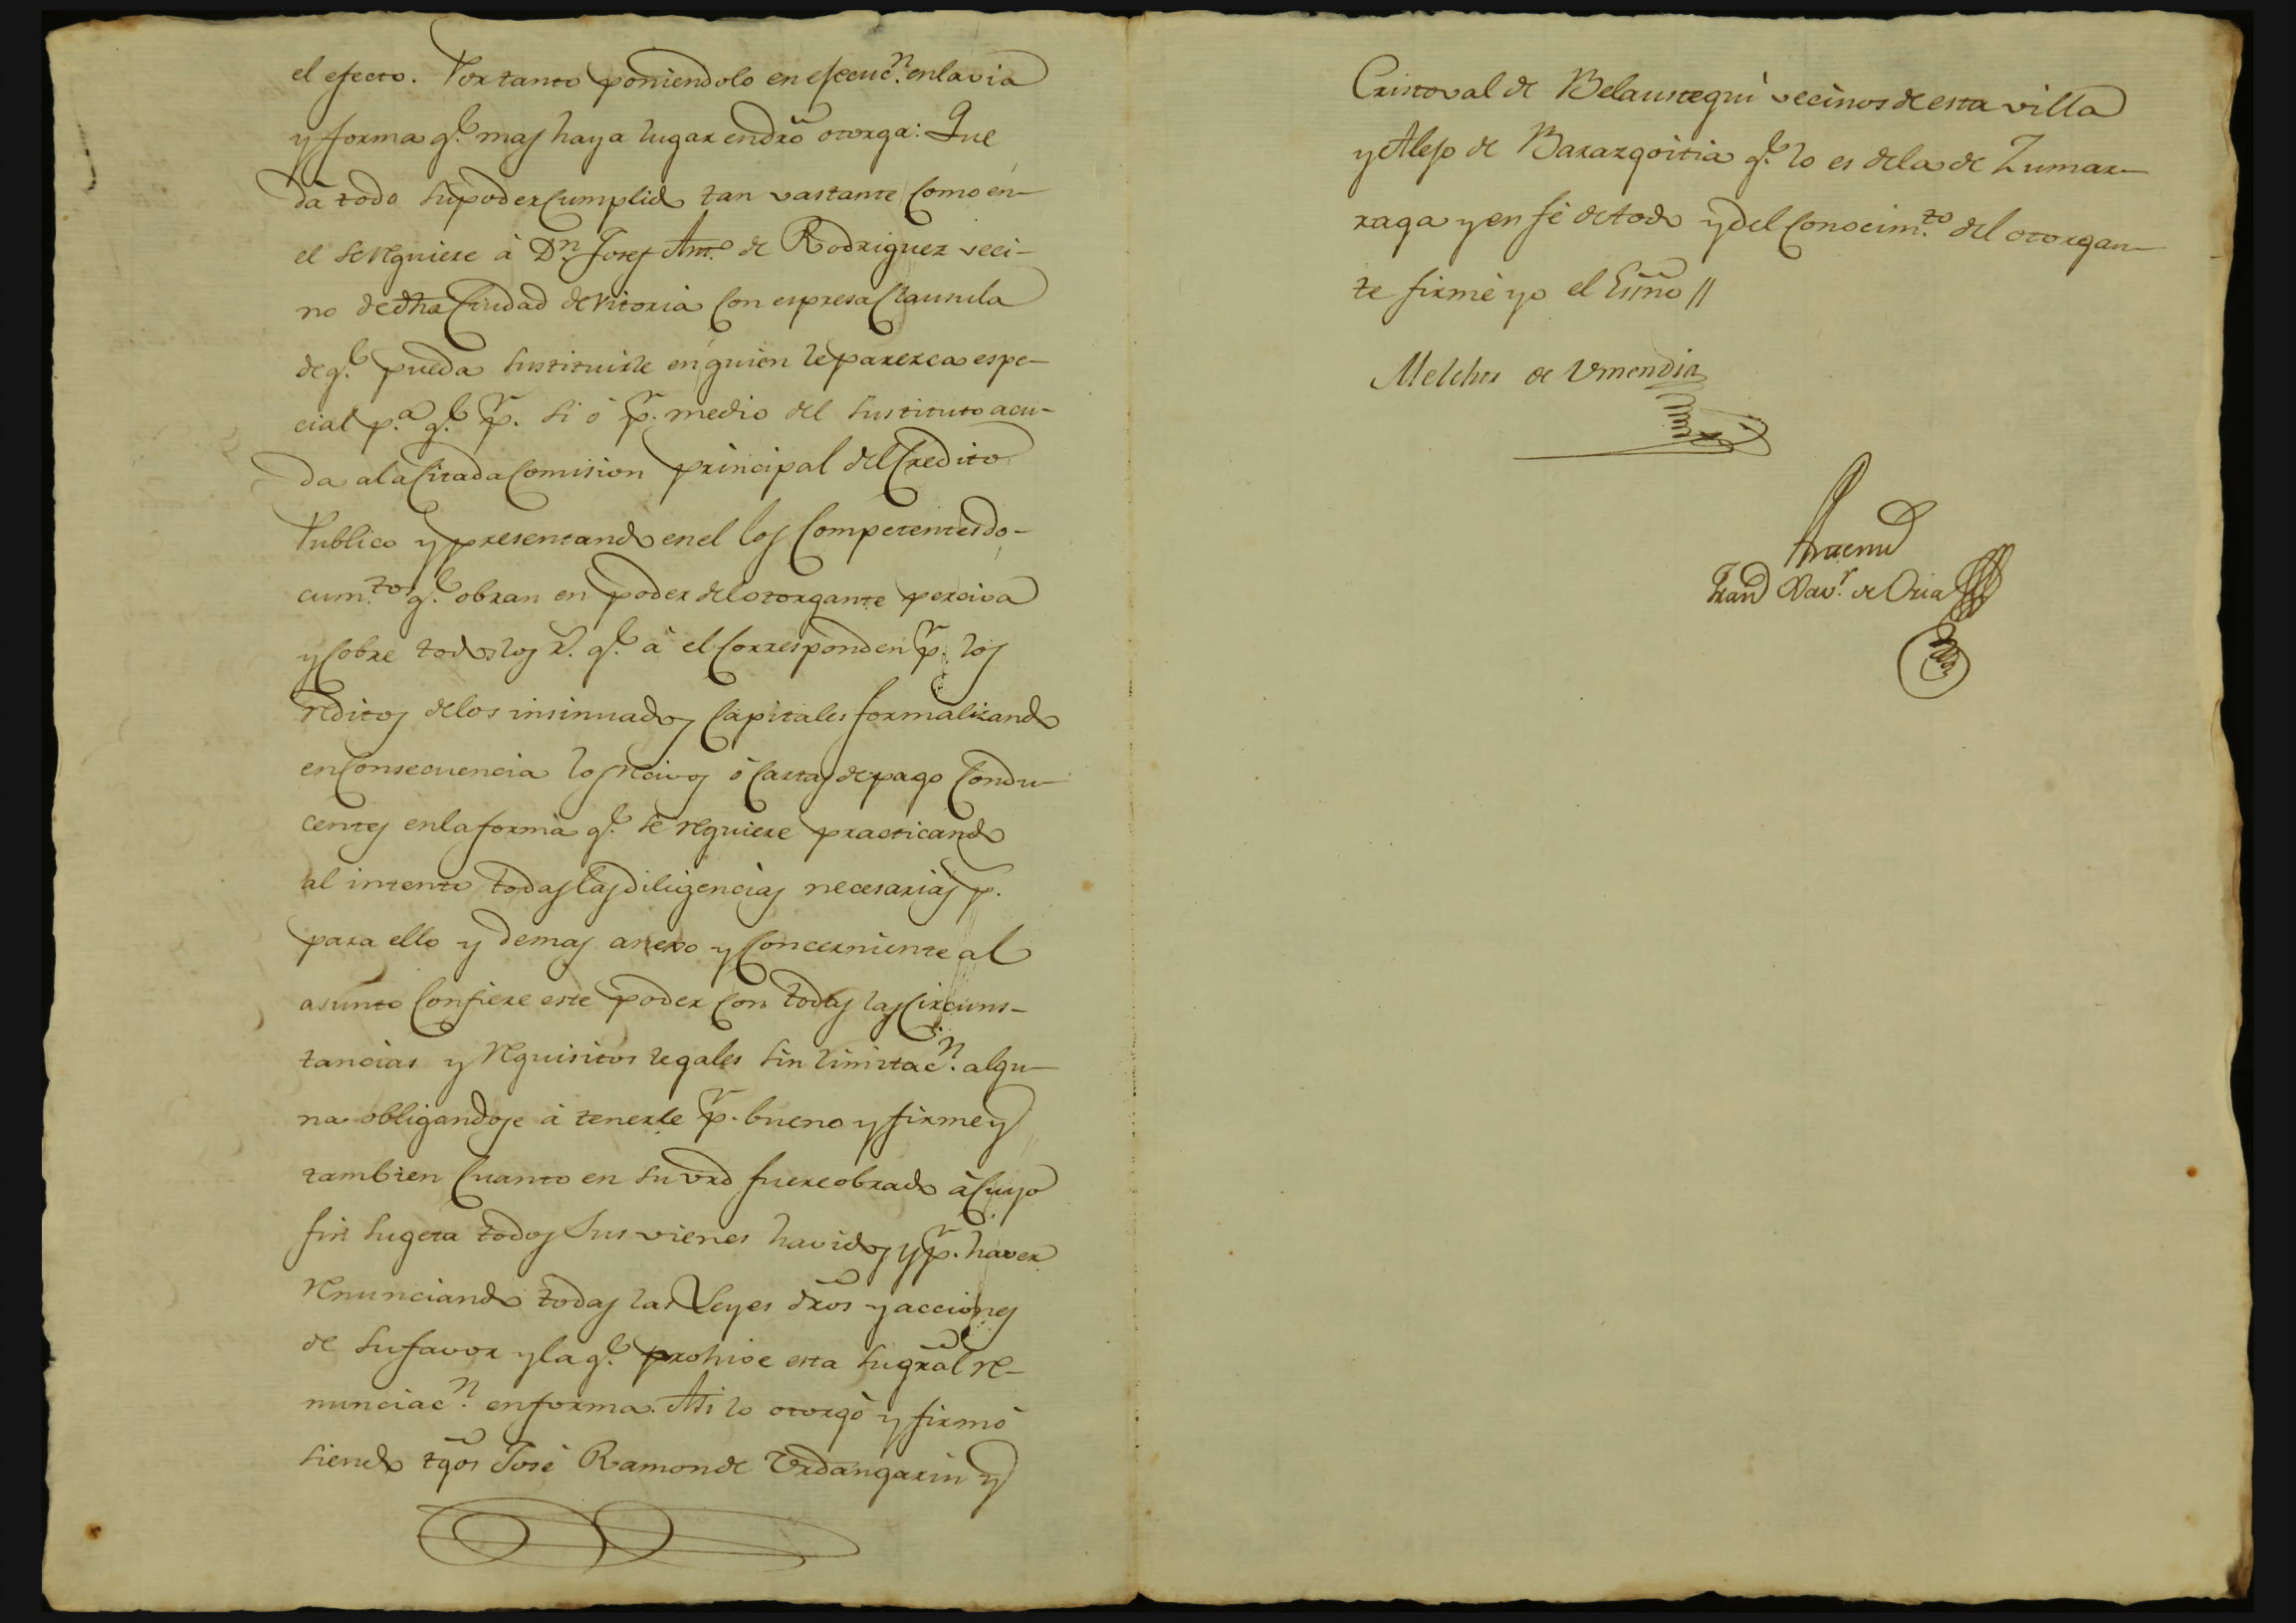 el efecto. Por tanto poniendolo en ejecuc.n en la via
y forma q.e mas haya lugar en dro otorga: Que
dà todo su poder cumplido tan vastante como en-
el se requiere à D.n Josef Ant.o de Rodriguez veci-
no de dha Ciudad de Vitoria con expresa Clausula
de q.e pueda sustituirle en quien le parezca espe-
cial p.a q.e p.r si ó p.r medio del sustituto acu-
da a la citada Comision principal del Credito
Publico y presentando en el los Competentes do-
cum.tos q.e obran en poder del otorgante perciva
y cobre todos los r.s q.e à el corresponden p.r los
reditos de los insinuados Capitales formalizando
en consecuencia los recivos ó Cartas de pago Condu-
centes en la forma q.e se requiere practicando
al intento todas las diligencias necesarias p.
para ello y demas anexo y concerniente al
asunto Confiere este poder con todas las circuns-
tancias y requisitos legales sin limitac.n algu-
na obligandose à tenerle p.r bueno y firme y
tambien cuanto en su vrd fuere obrado à cuyo
fin sugeta todos sus vienes havidos y p.r haver
renunciando todas las Leyes dros y acciones
de su favor y la q.e prohive esta su gral re-
nunciac.n en forma. Asi lo otorgó y firmó
siendo tgos José Ramon de Urdangarin y
Cristoval de Belaustegui vecinos de esta villa
y Alejo de Bararzgoitia q.e lo es de la de Zumar-
raga y en fé de todo y del conocim.to del otorgan-
te firmé yo el Essno //
Melchor de Umendia
Antemi
Fran.co Xav.r de Oria